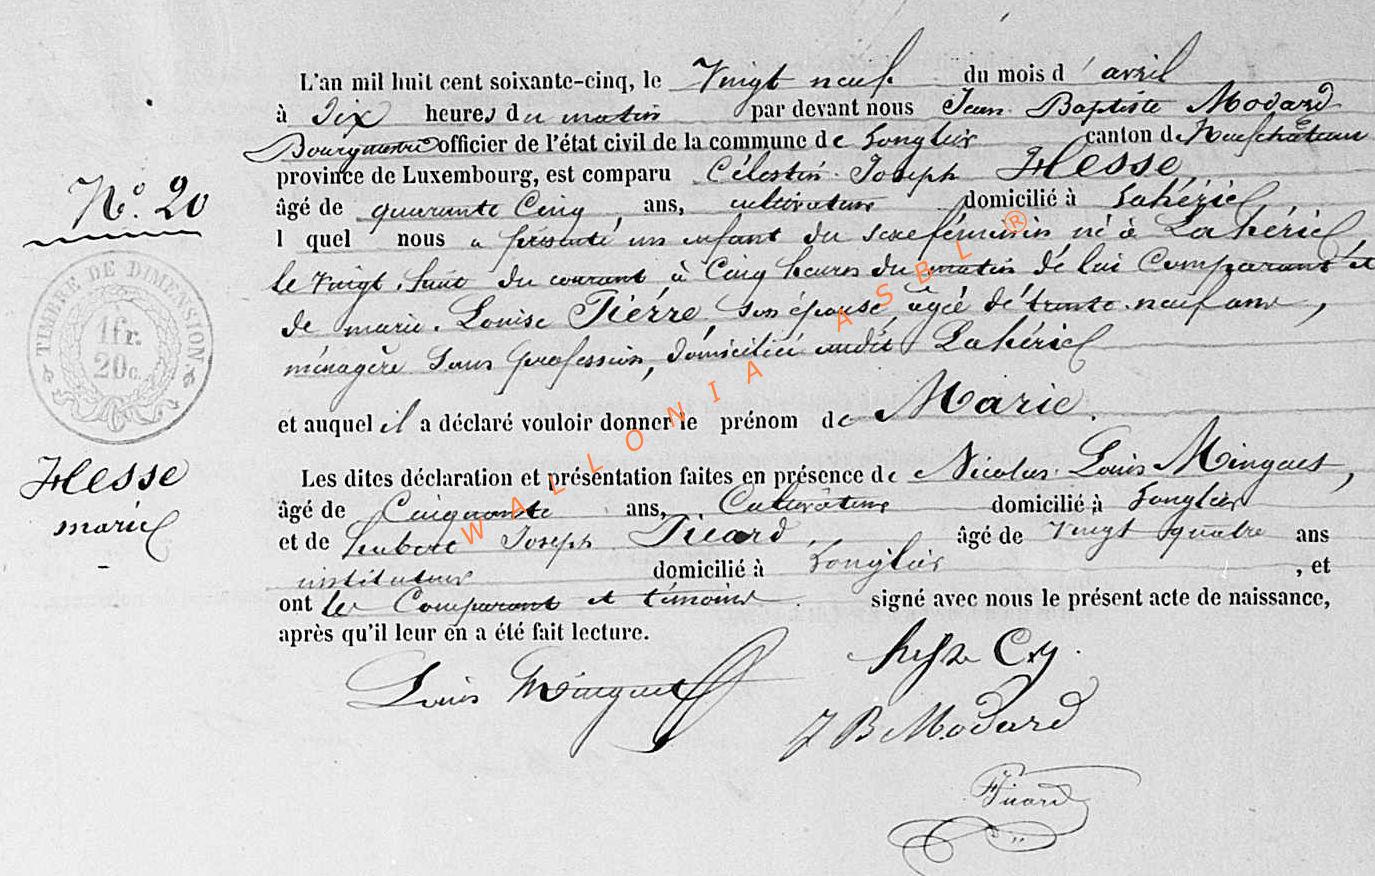 L'an mil huit cent soixante-cinq, le Vingt neuf du mois d'avril
à Dix heures du matin par devant nous Jean Baptiste Modard
Bourgmestre officier de l'état civil de la commune de Longlier canton de Neufchâteau
province de Luxembourg, est comparu Célestin Joseph Hesse,
N.º 20
âgé de quarante Cinq, ans, cultivateur domicilié à Lahérie,
l quel nous a présenté un enfant du sexe féminin né à Lahérie
le vingt huit du courant, à Cinq heures du matin de lui Comparant et
de marie Louise Pierre, son épouse, agée de trente neuf ans,
ménagère sans profession, domiciliée audit Lahérie
TIMBRE DE DIMENSION
1 fr.
20 c.
et auquel il a déclaré vouloir donner le prénom de Marie.
Hesse
marie
Les dites déclaration et présentation faites en présence de Nicolas Louis Minguet,
âgé de Cinquante ans, Cultivateur domicilié à Longlier
et de hubert Joseph Picard, âgé de vingt quatre ans
instituteur domicilié à Longlier, et
ont les Comparant et témoins signé avec nous le présent acte de naissance,
après qu'il leur en a été fait lecture.
Louis Minguet
J B Modard
Picard
WALLONIA ASBL ®